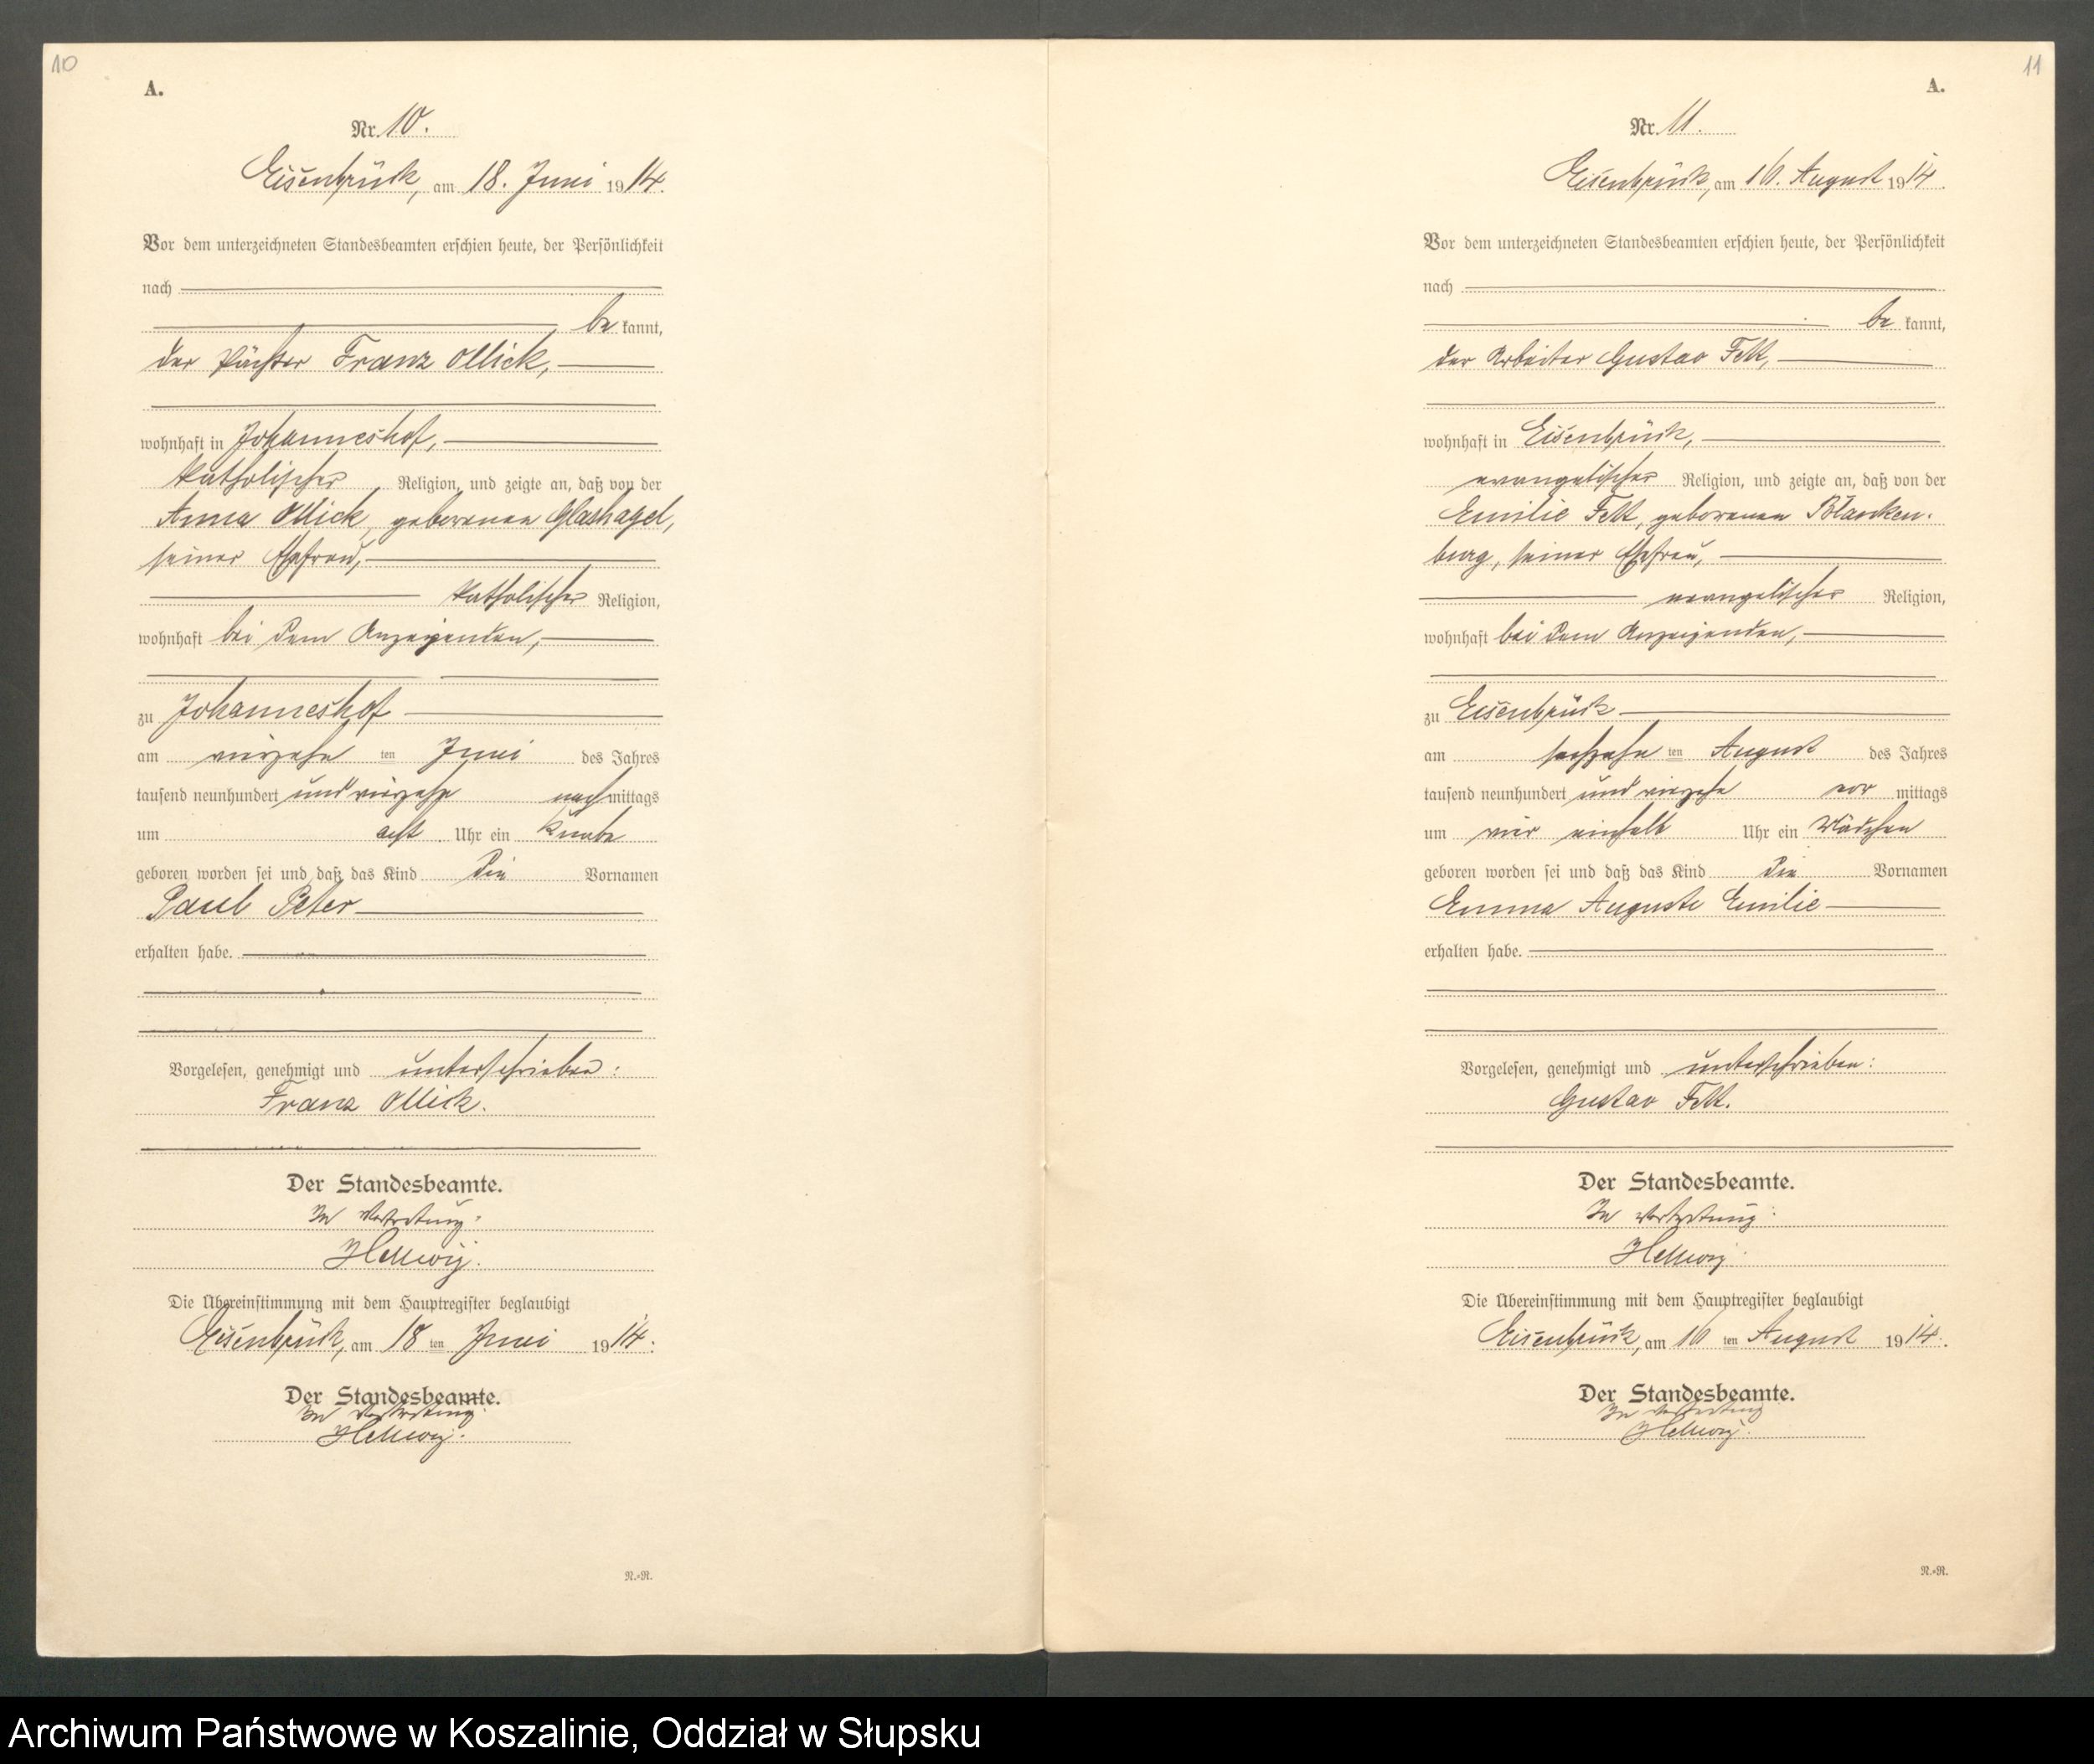 10
A.
Nr. 10.
Eisenbrück, am 18. Juni 1914.
Vor dem unterzeichneten Standesbeamten erschien heute, der Persönlichkeit
nach
be kannt,
der Pächter Franz Ollick,
wohnhaft in Johanneshof,
katholischer Religion, und zeigte an, daß von der
Anna Ollick, geborenen Glashagel,
seiner Ehefrau,
katholischer Religion,
wohnhaft bei dem Anzeigenden,
zu Johanneshof
am vierzehn ten Juni des Jahres
tausend neunhundert und vierzehn nach mittags
um acht Uhr ein Knabe
geboren worden sei und daß das Kind die Vornamen
Paul Peter
erhalten habe.
Vorgelesen, genehmigt und unterschrieben:
Franz Ollick.
Der Standesbeamte.
In Vertretung:
Hellwig.
Die Übereinstimmung mit dem Hauptregister beglaubigt
Eisenbrück, am 18 ten Juni 1914.
Der Standesbeamte.
In Vertretung:
Hellwig.
N.=R.
11
A.
Nr. 11.
Eisenbrück, am 16. August 1914.
Vor dem unterzeichneten Standesbeamten erschien heute, der Persönlichkeit
nach
be kannt,
der Arbeiter Gustav Fett,
wohnhaft in Eisenbrück,
evangelischer Religion, und zeigte an, daß von der
Emilie Fett, geborenen Blancken-
burg, seiner Ehefrau,
evangelischer Religion,
wohnhaft bei dem Anzeigenden,
zu Eisenbrück
am sechzehn ten August des Jahres
tausend neunhundert und vierzehn vor mittags
um vier einhalb Uhr ein Mädchen
geboren worden sei und daß das Kind die Vornamen
Emma Auguste Emilie
erhalten habe.
Vorgelesen, genehmigt und unterschrieben:
Gustav Fett.
Der Standesbeamte.
In Vertretung:
Hellwig.
Die Übereinstimmung mit dem Hauptregister beglaubigt
Eisenbrück, am 16 ten August 1914.
Der Standesbeamte.
In Vertretung
Hellwig.
N.=R.
Archiwum Państwowe w Koszalinie, Oddział w Słupsku